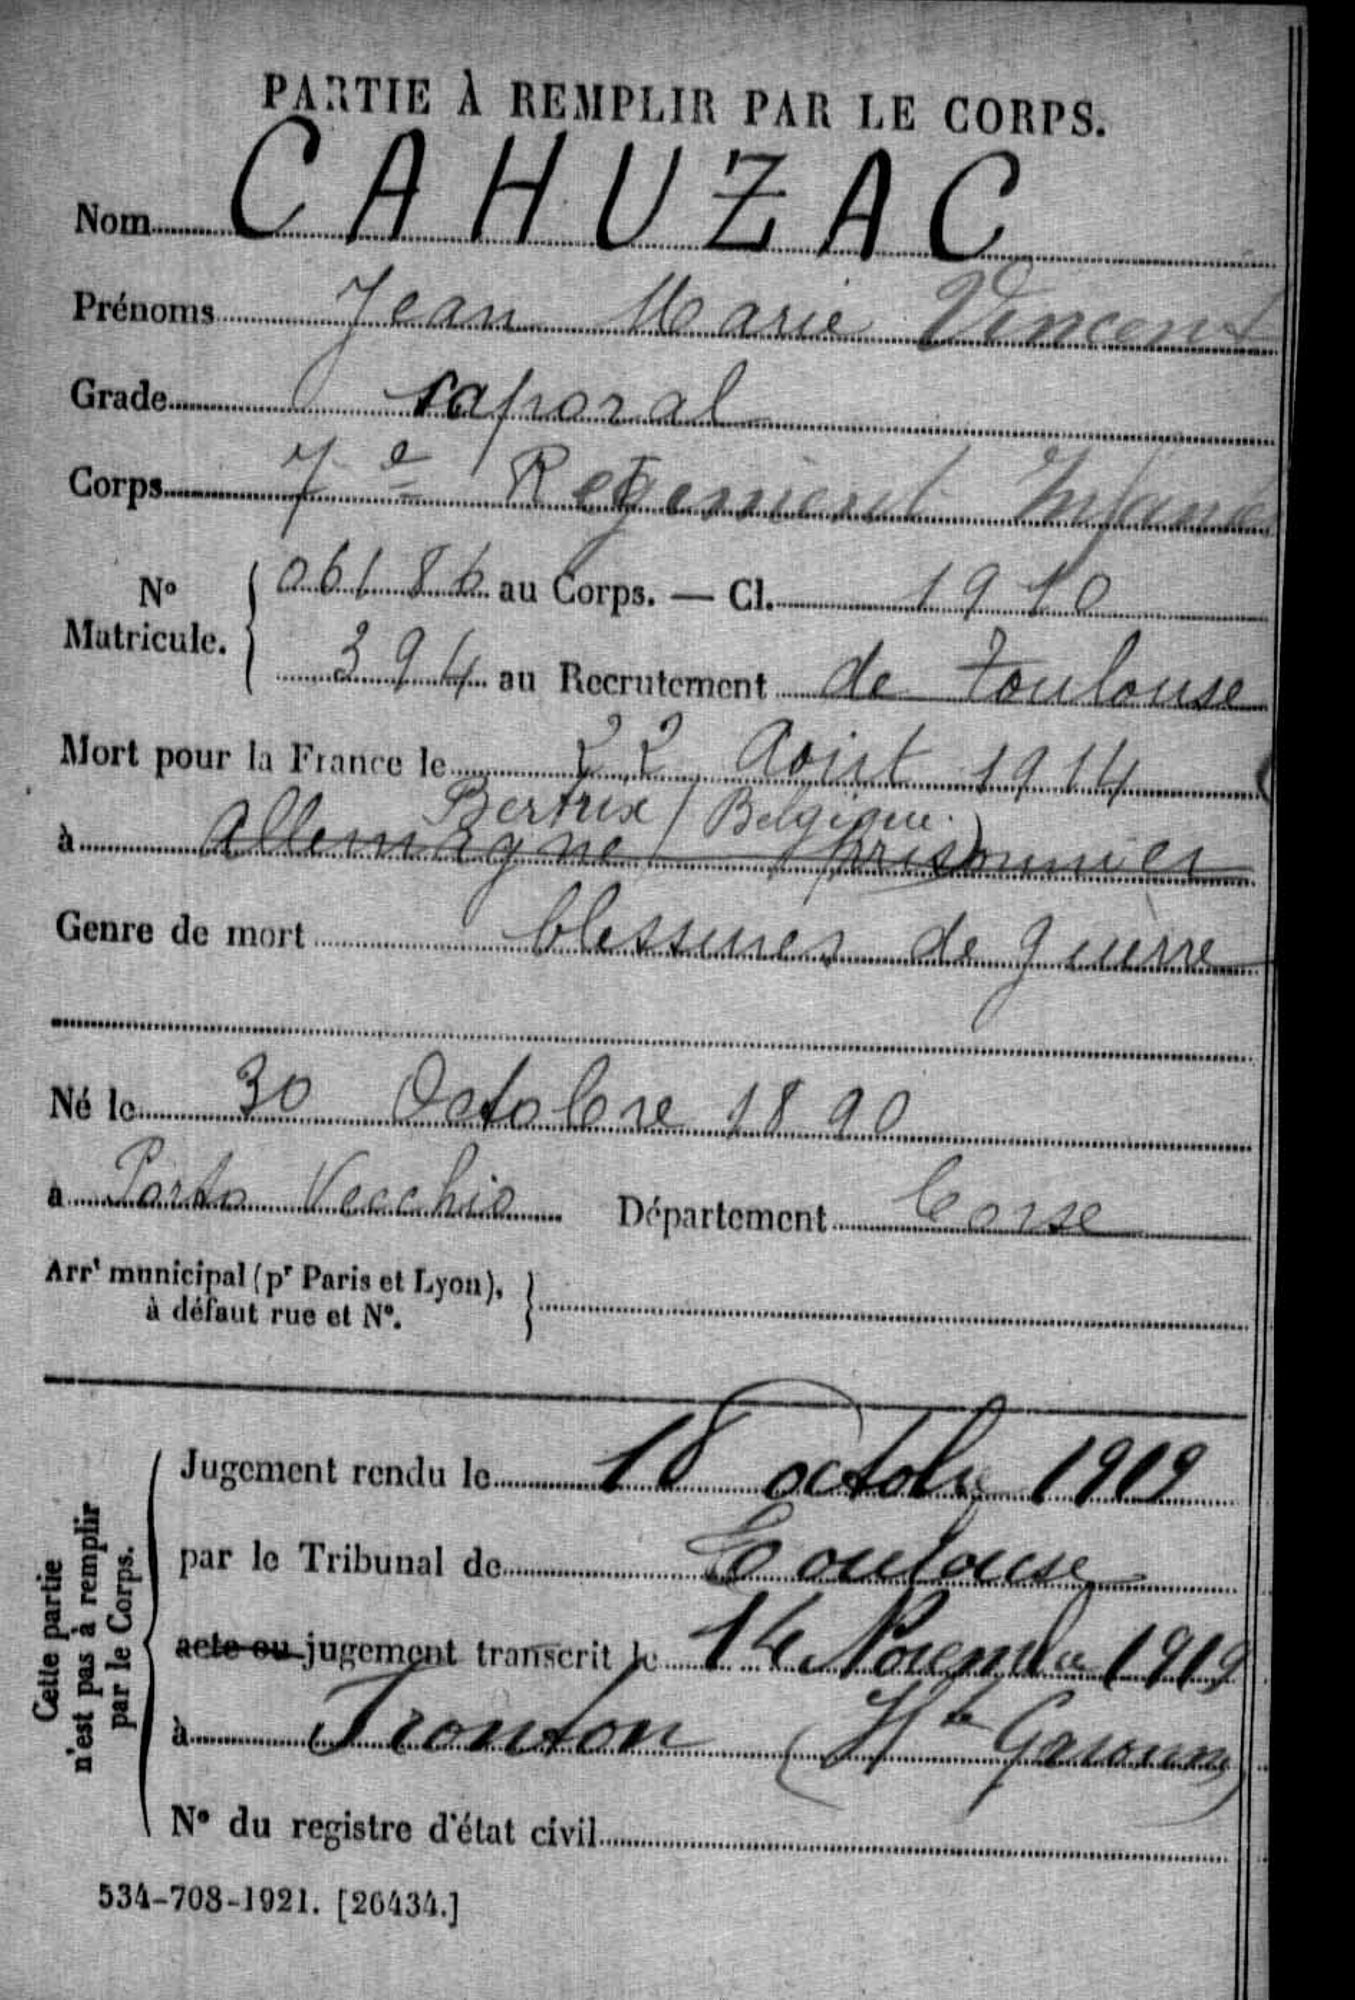 PARTIE À REMPLIR PAR LE CORPS.
Nom CAHUZAC
Prénoms Jean Marie Vincent
Grade Caporal
Corps 7e Regement Infant
No Matricule. 06186 au Corps. — Cl. 1910
394 au Recrutement de Toulouse
Mort pour la France le 22 Août 1914
Bertrix (Belgique)
à Allemagne prisonnier
Genre de mort blessures de guerre
Né le 30 Octobre 1890
à Porto Vecchio Département Corse
Arrt municipal (pr Paris et Lyon),
à défaut rue et No.
Cette partie
n'est pas à remplir
par le Corps.
Jugement rendu le 18 octobre 1919
par le Tribunal de Toulouse
acte ou jugement transcrit le 14 Novembre 1919
à Fronton (Hte Garonne)
No du registre d'état civil
534-708-1921. [26434.]